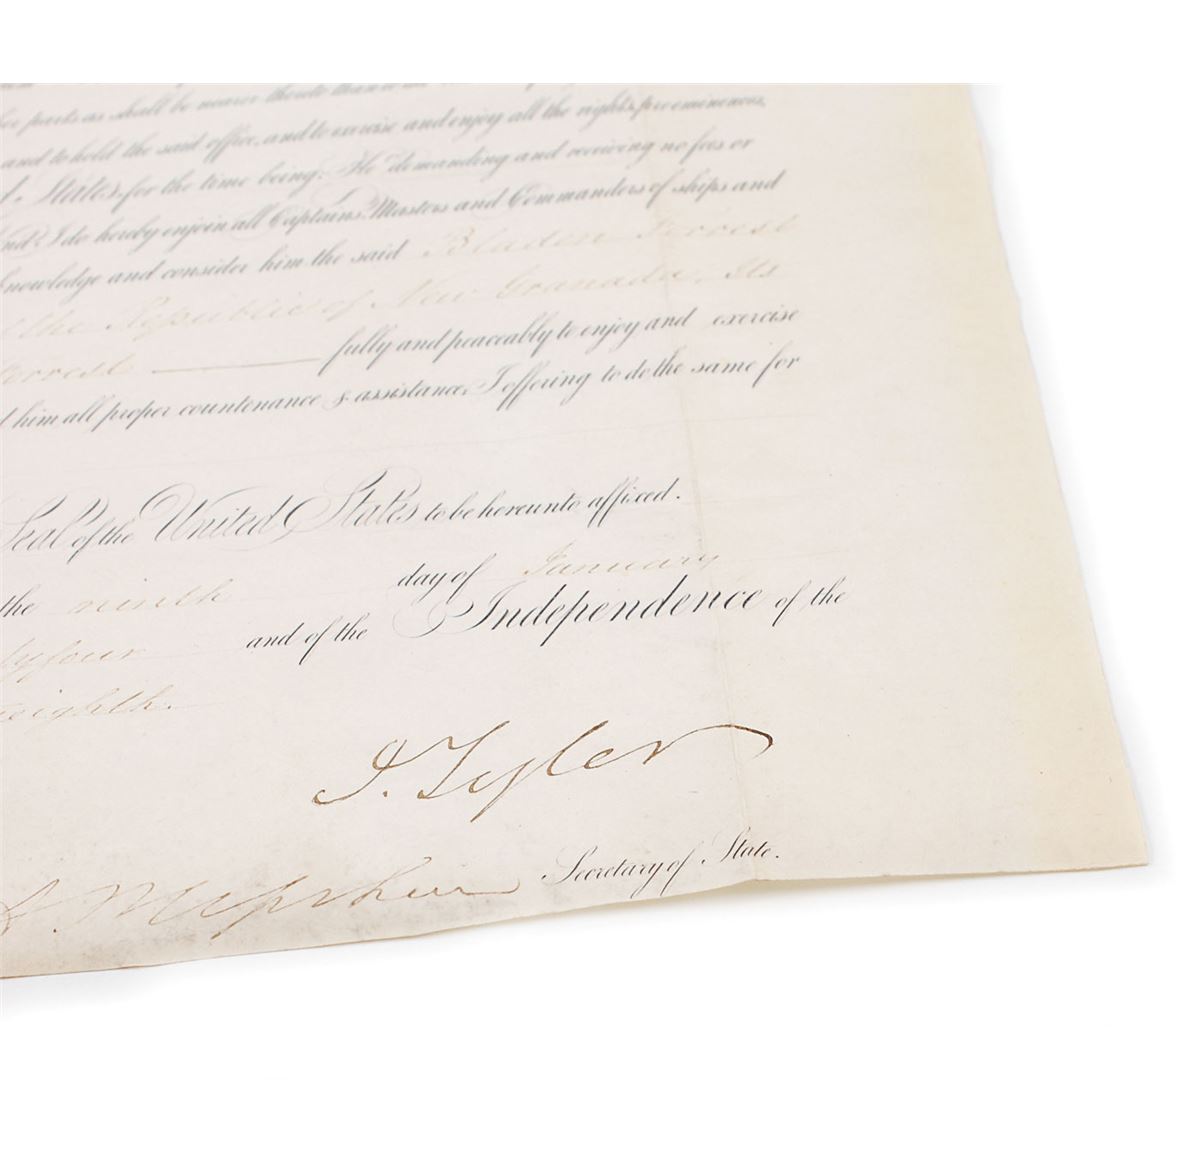 parts as shall be nearer thereto than
and to hold the said office, and to exercise and enjoy all the rights, preeminences,
States, for the time being: He demanding and receiving no fees or
I do hereby enjoin all Captains, Masters and Commanders of ships and
knowledge and consider him the said Bladen Forrest
the Republic of New Granada, Its
orrest fully and peaceably to enjoy and exercise
him all proper countenance & assistance, I offering to do the same for
Seal of the United States to be hereunto affixed.
the ninth day of January
tyfour and of the Independence of the
eighth.
J. Tyler
A. P. Upshur Secretary of State.